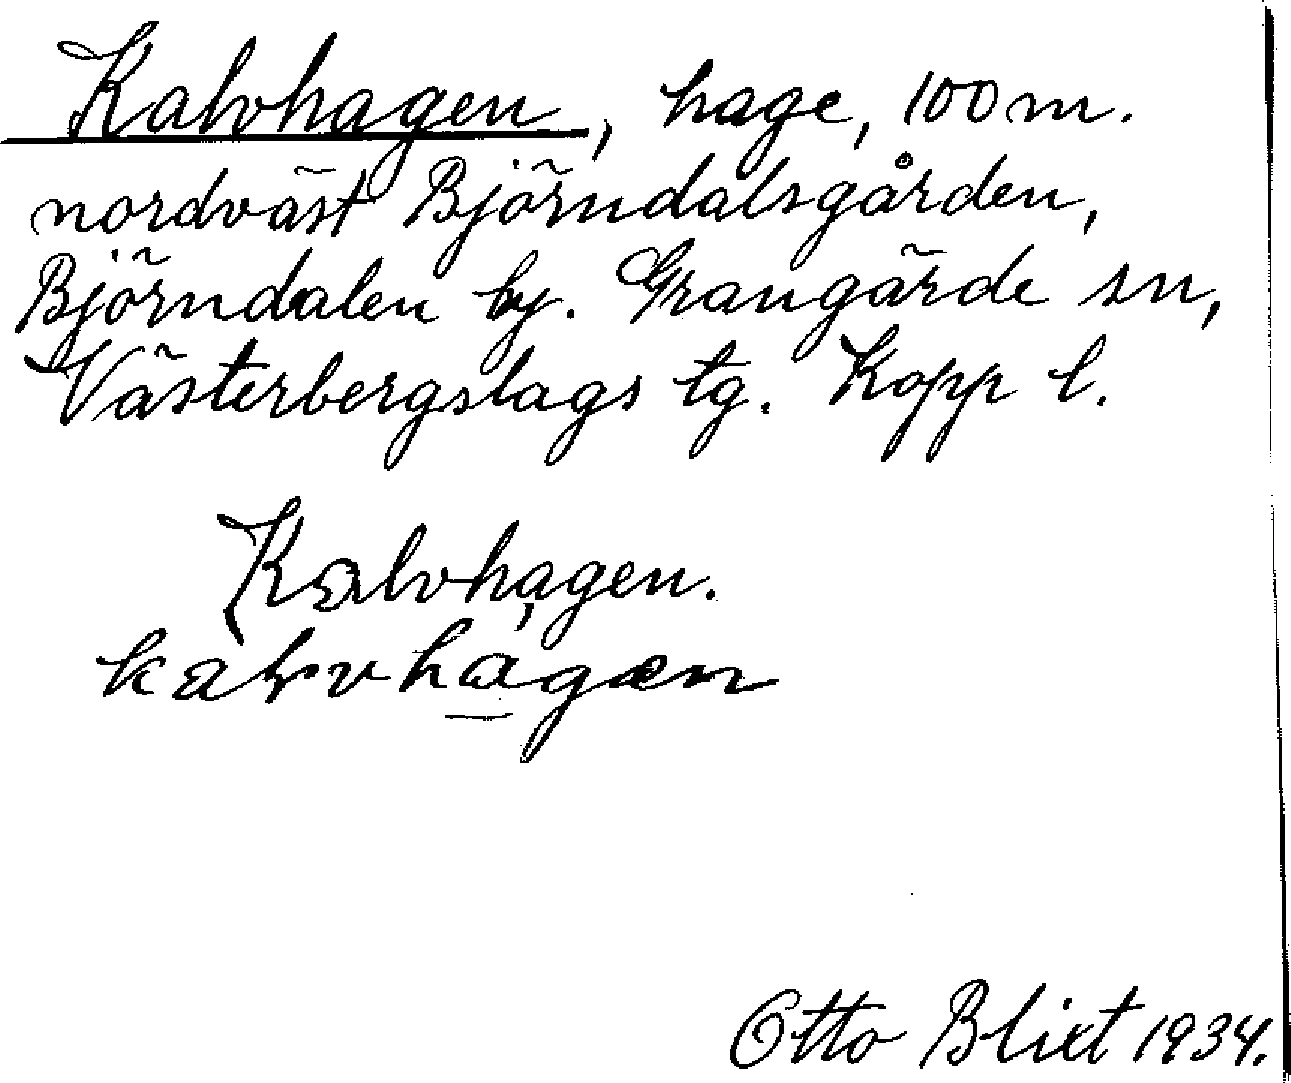 Kalvhagen, hage, 100 m.
nordväst Björndalsgården,
Björndalen by. Grangärde sn,
Västerbergslags tg. Kopp l.
Kalvhagen.
kalvhagæn
Otto Blixt 1934.